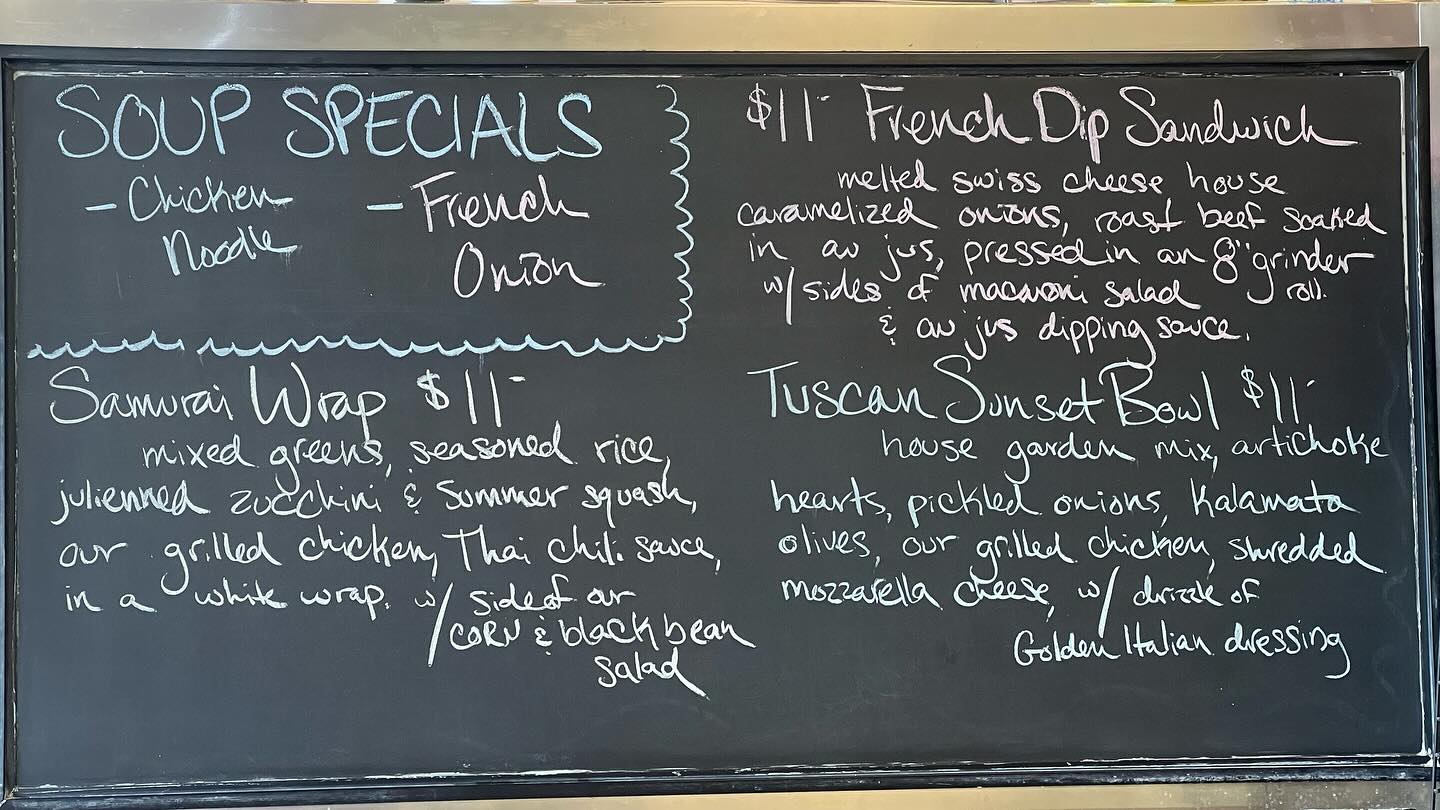 SOUP SPECIALS
- Chicken Noodle
- French Onion
$11- French Dip Sandwich
melted swiss cheese house
caramelized onions, roast beef soaked
in au jus, pressed in an 8" grinder roll.
w/ sides of macaroni salad
& au jus dipping sauce.
Samurai Wrap $11-
mixed greens, seasoned rice,
julienned zucchini & summer squash,
our grilled chicken, Thai chili sauce,
in a white wrap. w/ side of our
corn & black bean
salad
Tuscan Sunset Bowl $11-
house garden mix, artichoke
hearts, pickled onions, Kalamata
olives, our grilled chicken, shredded
mozzarella cheese, w/ drizzle of
Golden Italian dressing